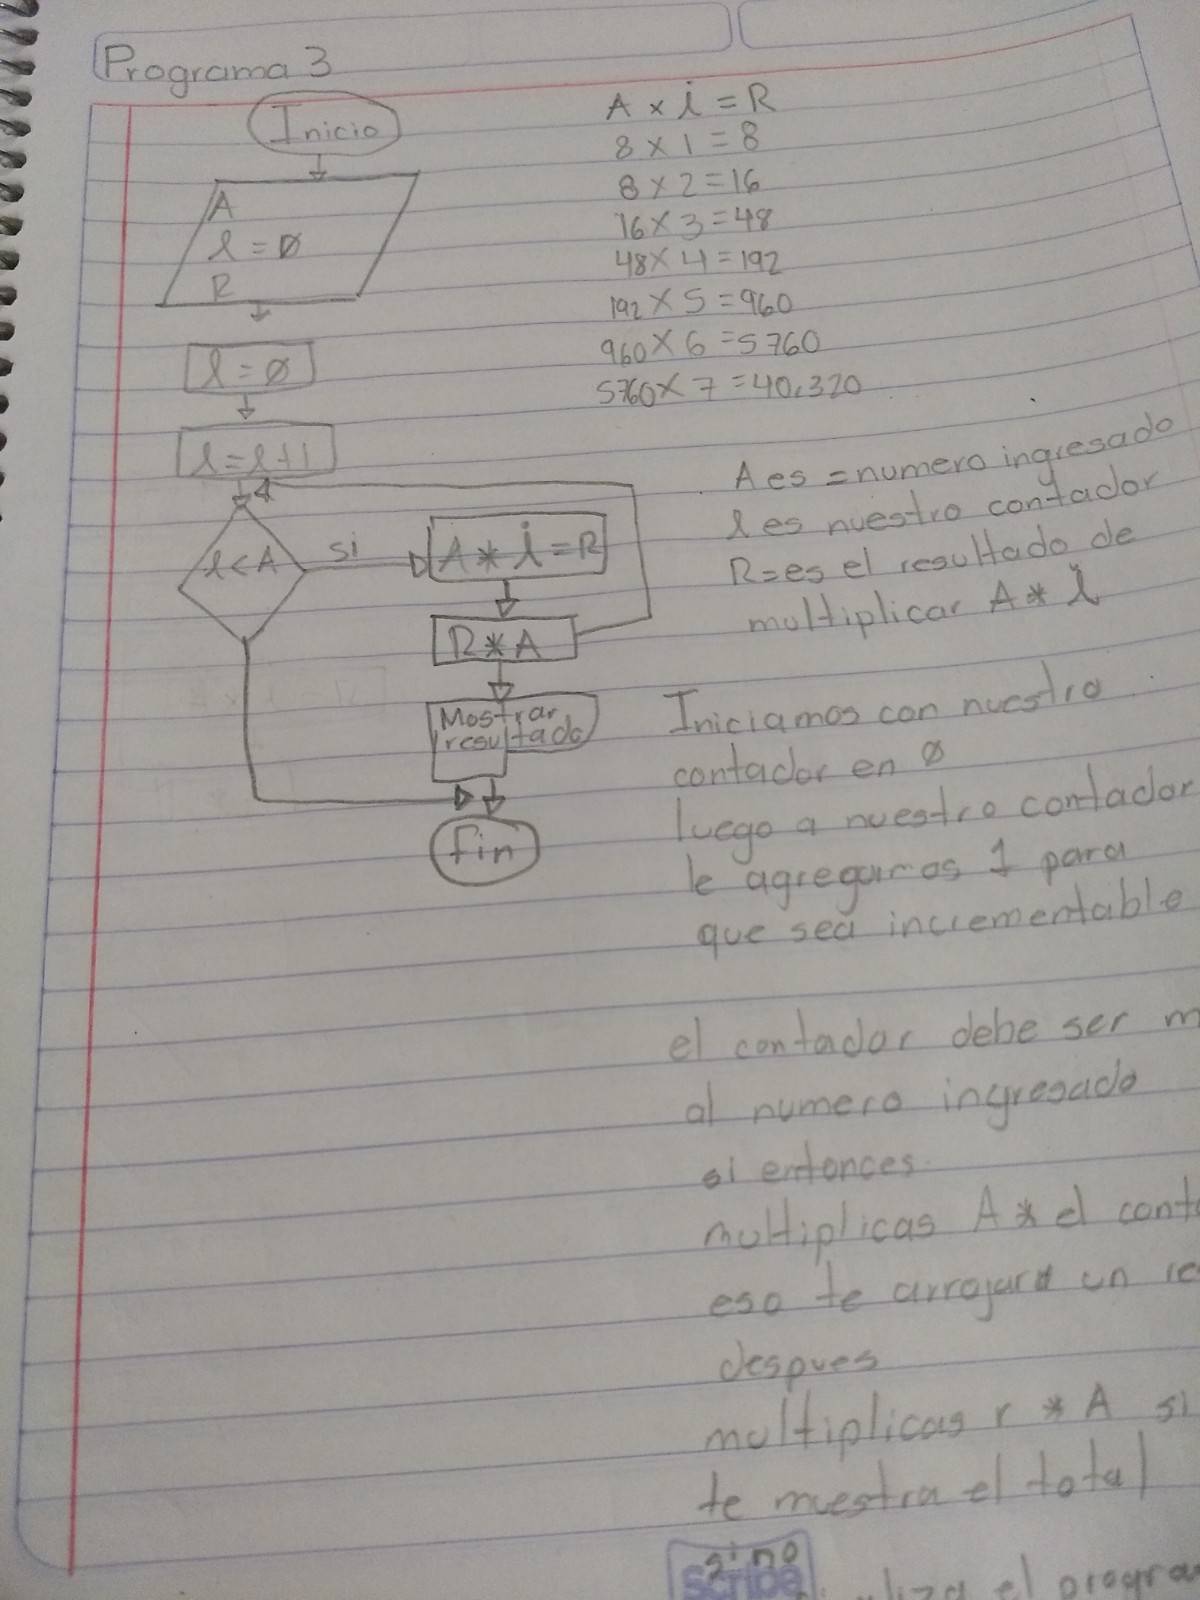 Programa 3
Inicio
A
i = Ø
R
i = Ø
i = i + 1
i < A
si
A * i = R
R * A
Mostrar
resultado
Fin
A x i = R
8 x 1 = 8
8 x 2 = 16
16 x 3 = 48
48 x 4 = 192
192 x 5 = 960
960 x 6 = 5760
5760 x 7 = 40,320
A es = numero ingresado
i es nuestro contador
R = es el resultado de
multiplicar A * i
Iniciamos con nuestro
contador en Ø
luego a nuestro contador
le agregamos 1 para
que sea incrementable
el contador debe ser m
al numero ingresado
si entonces
multiplicas A * el cont
eso te arrojara un re
despues
multiplicas r * A si
te muestra el total
si no
Scribe
el progra